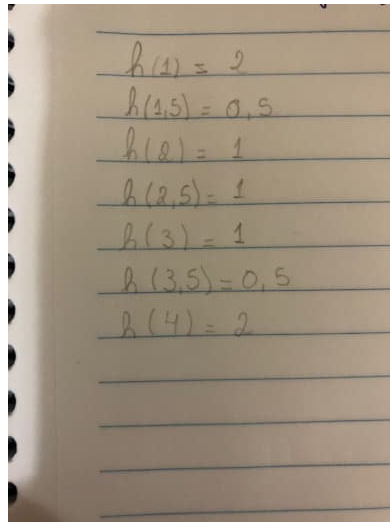 h(1) = 2
h(1,5) = 0,5
h(2) = 1
h(2,5) = 1
h(3) = 1
h(3,5) = 0,5
h(4) = 2